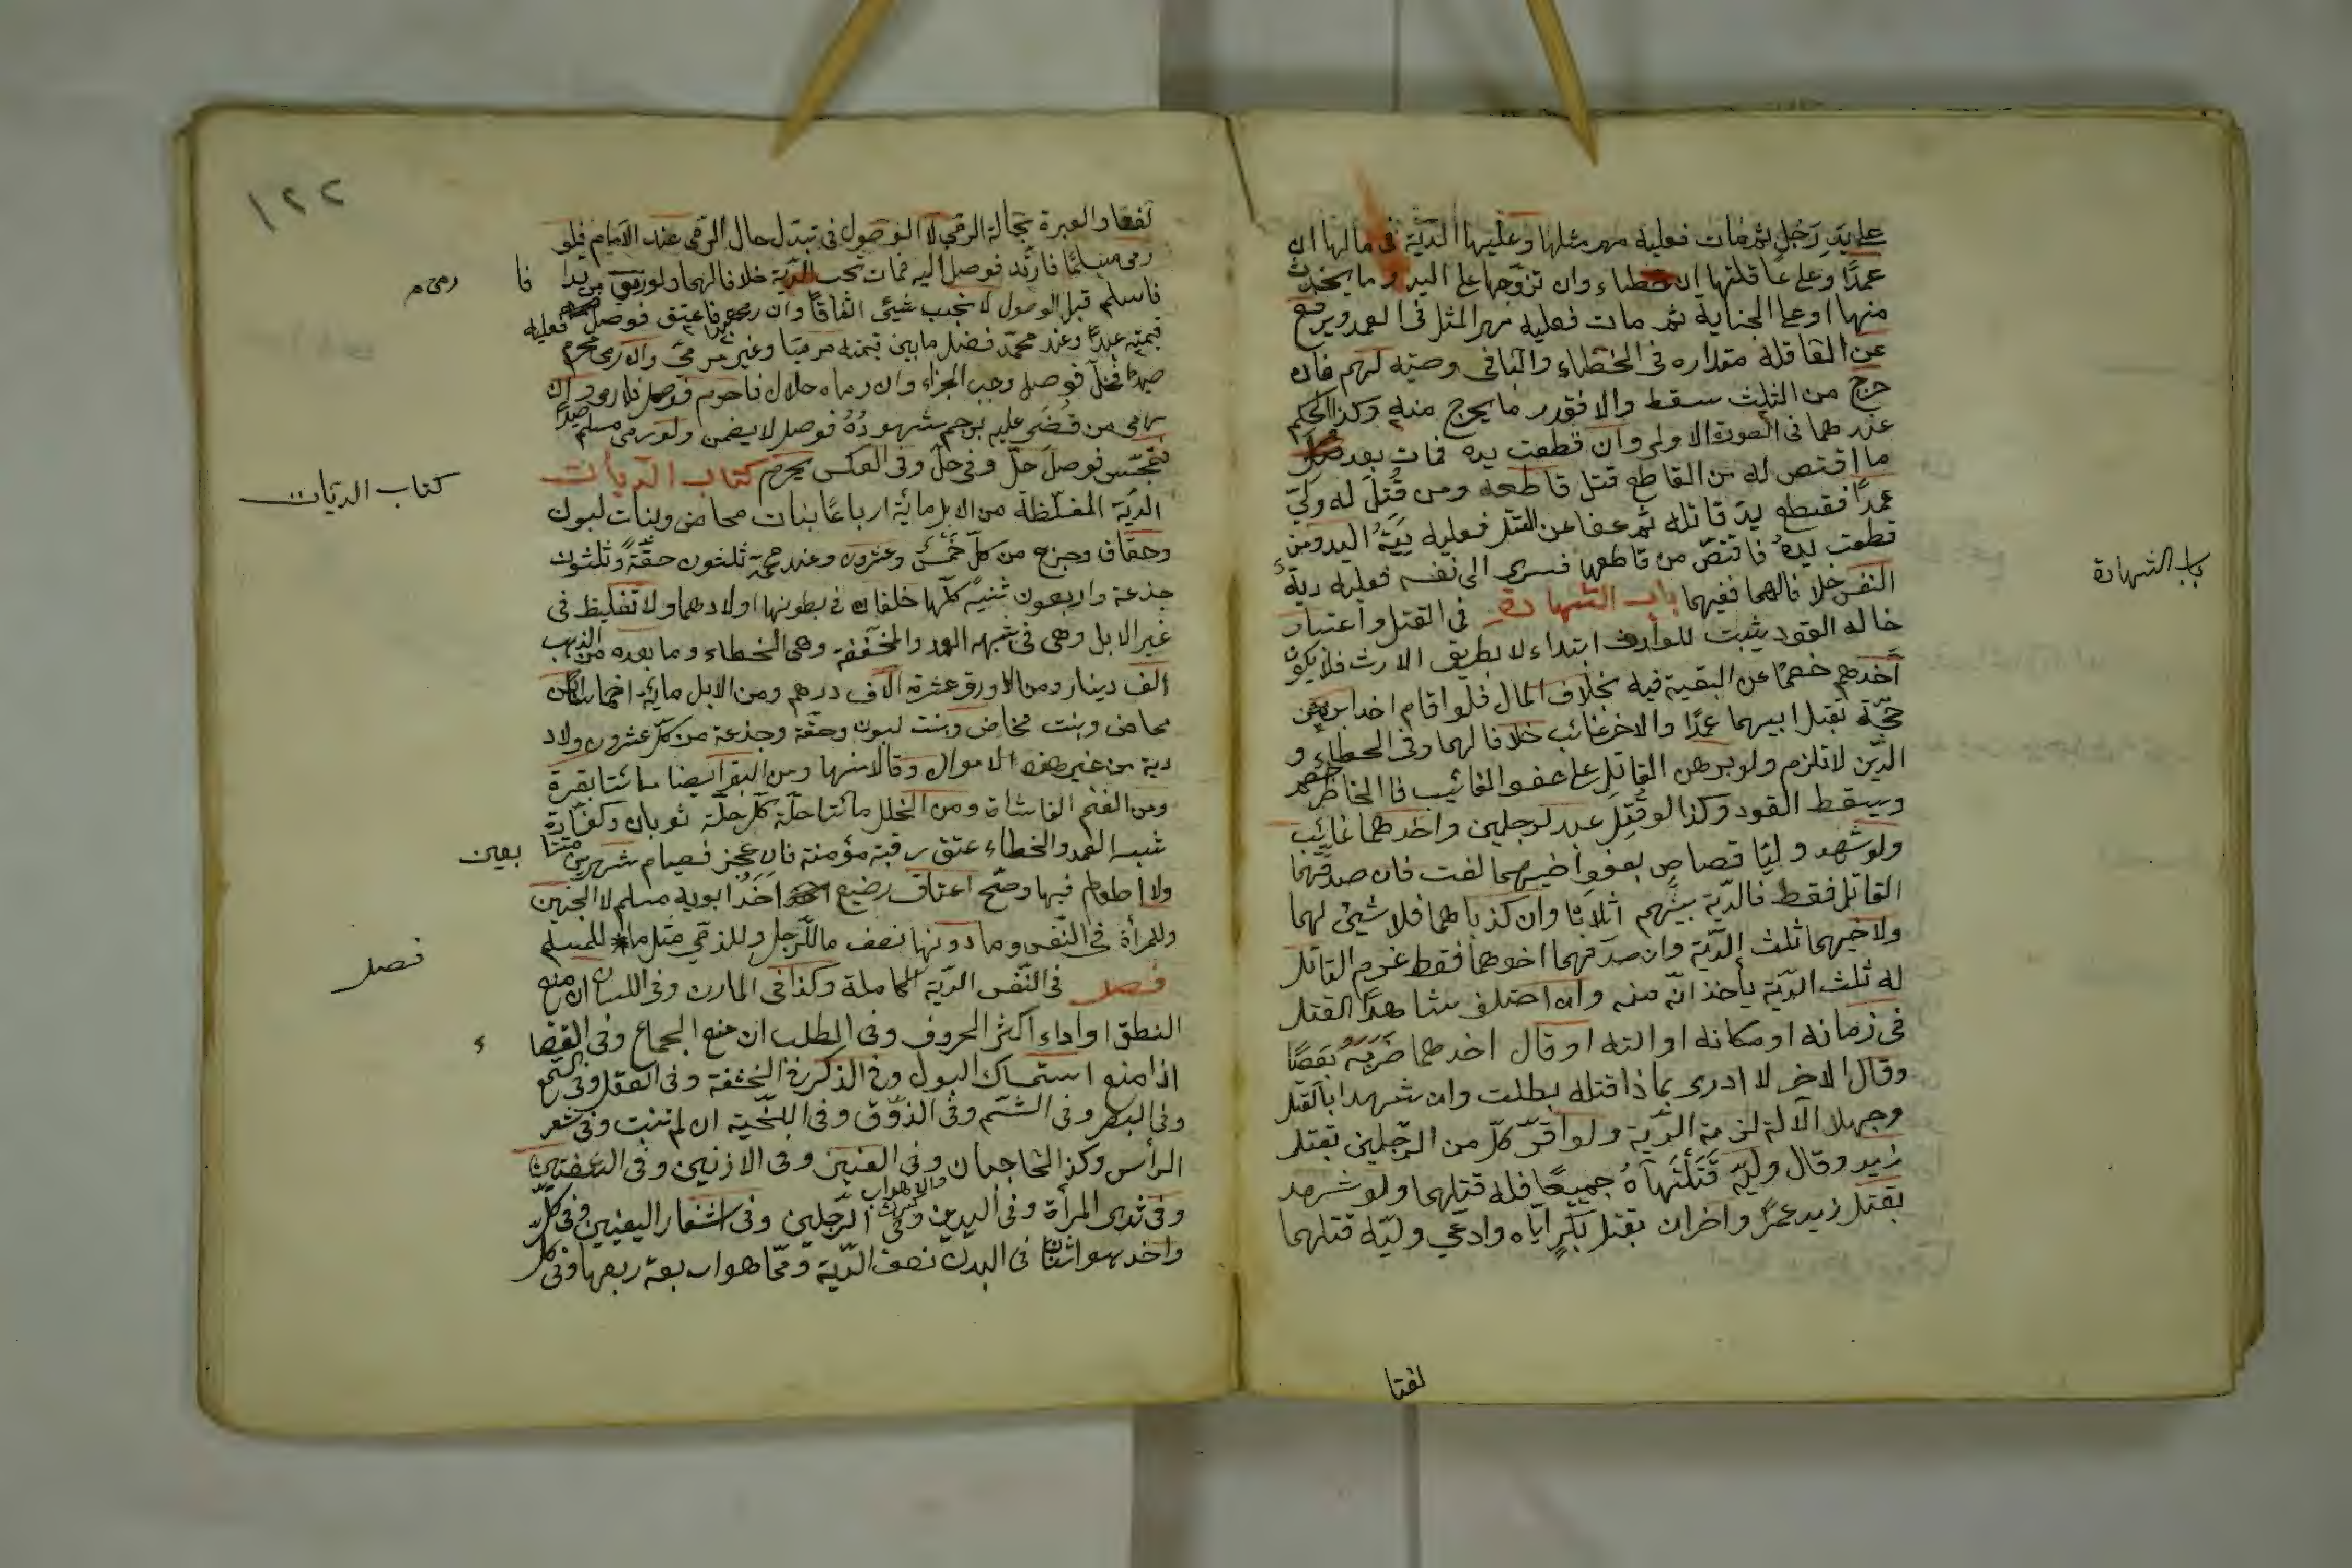 على يد رجل ثم مات فعليه مهر مثلها وعليها الدية في مالها ان
عمدًا وعلى عاقلتها ان خطاء وان تزوجها على اليد وما يحدث
منها او على الجناية ثم مات فعليه مهر المثل فى العمد ويرفع
عن العاقلة مقداره فى الخطاء والباقى وصية لهم فان
خرج من الثلث سقط والا فقدر ما يخرج منه وكذا الحكم
عندهما فى الصورة الاولى وان قطعت يده فمات بعد
ما اقتص له من القاطع قتل قاطعه ومن قُتِلَ له وليّ
عمدًا فقطع يد قاتله ثم عفا عن القتل فعليه دية اليد ومن
قطعت يده فاقتص من قاطعها فسرى الى نفسه فعليه دية
النفس خلافا لهما ففيهما باب الشهادة فى القتل واعتبار
حاله القود يثبت للوارث ابتداء لا بطريق الارث فلا يكون
احدهم خصمًا عن البقية فيه بخلاف المال فلو اقام احد ابنين
حجّة بقتل ابيهما عمدًا والاخر غائب خلافا لهما وفى الخطاء و
الدّين لا تلزم ولو برهن القاتل على عفو الغائب فالحاضر خصم
ويسقط القود وكذا لو قُتِل عبد لرجلين واحدهما غائب
ولو شهد وليّا قصاص بعفو اخيهما لغت فان صدقهما
القاتل فقط فالدّية بينهم اثلاثا وان كذباهما فلا شيئ لهما
ولاخيهما ثلث الدّية وان صدقهما اخوهما فقط غرم القاتل
له ثلث الدّية يأخذانه منه وان اختلف شاهدا القتل
فى زمانه او مكانه او آلته او قال احدهما ضربه بعصًا
وقال الاخر لا ادرى بماذا قتله بطلت وان شهدا بالقتل
وجهلا الآلة لزمة الدّية ولو اقرّ كلّ من الرّجلين بقتل
زيد وقال وليّه قتلتماه جميعًا فله قتلهما ولو شهد
بقتل زيد عمرًا واخران بقتل بكرٍ ايّاه وادعى وليّه قتلهما
باب الشهادة
لغتا
١٢٢
لغتا والعبرة بحالة الرمي لا الوصول فى تبدل حال الرمى عند الامام فلو
رمى مسلمًا فارتد فوصل اليه فمات تجب الدّية خلافا لهما ولو رمى مرتدا فا
فاسلم قبل الوصول لا تجب شيئ اتفاقًا وان رمى عبدا فاعتق فوصل فعليه
قيمته عبدًا وعند محمّد فضل ما بين قيمته مرميّا وغير مرميّ وان رمى محرم
صيدًا فحلّ فوصل وجب الجزاء وان رماه حلال فاحرم فوصل فلا رمى وان
رمى من قضى عليه برجم شهوده فوصل لا يضمن ولو رمى مسلم صيدًا
فتمجّس فوصل حلّ وفى حلّ وفى العكس يحرم كتاب الدّيات
الدّية المغلّظة من الابل مائة ارباعًا بنات مخاض وبنات لبون
وحقاق وجزع من كلّ خمس وعشرون وعند محمّد ثلثون حقّة وثلثون
جذعة واربعون ثنيّة كلّها خلفات فى بطونها اولادها ولا تغليظ فى
غير الابل وهى فى شبه العمد والمخففة وهى الخطاء وما بعده من الذهب
الف دينار ومن الورق عشرة آلاف درهم ومن الابل مائة اخماسا ابن
مخاض وبنت مخاض وبنت لبون وحقة وجذعة من كلّ عشرون ولا
دية من غير هذه الاموال وقالا منها ومن البقر ايضا مائتا بقرة
ومن الغنم الفا شاة ومن الحلل مائتا حلّة كلّ حلّة ثوبان وكفّارة
شبه العمد والخطاء عتق رقبة مؤمنة فان عجز فصيام شهرين متتا بعين
ولا اطعام فيها وصح اعتاق رضيع احد ابويه مسلم لا الجنين
وللمرأة فى النّفس وما دونها نصف ما للرّجل وللذمّي مثل ما للمسلم
فصل فى النّفس الدّية الكاملة وكذا فى المارن وفى اللسان ان منع
النطق او اداء اكثر الحروف وفى الصلب ان منع الجماع وفى افضا ء
اذا منع استمساك البول وفى الذكر وفى الحشفة وفى العقل وفى السّمع
وفى البصر وفى الشّم وفى الذوق وفى اللّحية ان لم تنبت وفى شعر
الرأس وكذا الحاجبان وفى العينين وفى الاذنين وفى الشفتين
وفى ثدى المرأة وفى اليدين وفى الرّجلين وفى اشفار العينين وفى كلّ
واحد هو اثنان فى البدن نصف الدّية وممّا هو اربعة ربعها وفى كلّ
رمى م
كتاب الديات
فصل